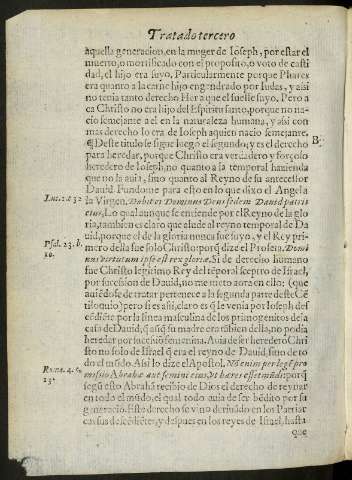 Tratado tercero
aquella generacion, en la muger de Ioseph, por estar el
muerto, o mortificado con el proposito, o voto de casti
dad, el hijo era suyo, Particularmente porque Phares
era quanto a la carne hijo engendrado por Iudas, y assi
no tenia tanto derecho Her a que el fuesse suyo, Pero a
ca Christo no era hijo del Espiritu santo, porque no na-
cio semejante a el en la naturaleza humana, y assi con
mas derecho lo era de Ioseph a quien nacio semejante.
B
¶ Deste titulo se sigue luego el segundo; y es el derecho
para heredar, porque Christo era verdadero y forçoso
heredero de Ioseph, no quanto a la temporal hazienda
que no la auia, sino quanto al Reyno de su antecessor
Dauid Fundome para esto en lo que dixo el Angel a
Luc. 1. d 32
la Virgen, Dabit ei Dominus Deus sedem Dauid patris
eius, Lo qual aunque se entiende por el Reyno de la glo
ria, tambien es claro que alude al reyno temporal de Da
uid, porque el de la gloria nunca fue suyo, y el Rey pri-
mero della fue solo Christo porq̃ dize el Profeta, Domi
Psal. 23. b.
10.
nus virtutum ipse est rex gloriæ. Si de derecho humano
fue Christo legitimo Rey del tẽporal sceptro de Israel,
por sucession de Dauid, no me meto aora en ello; (que
auiẽdose de tratar pertenece a la segunda parte deste Cẽ
tiloquio) pero si es assi, claro es q̃ le venia por Ioseph des
cẽdiẽte por la linea masculina de los primogenitos de la
casa de Dauid; q̃ assi q̃ su madre era tãbien della, no podia
heredar por successiõ femenina. Auia de ser heredero Chri
sto no solo de Israel q̃ era el reyno de Dauid, sino de to
do el mũdo. Assi lo dize el Apostol, Nõ enim per legẽ pro
Roma. 4. c.
13.
missio Abrahæ aut semini eius, vt hæres esset mũdi; porq̃
segũ esto Abrahã recibio de Dios el derecho de reynar
en todo el mũdo, el qual todo auia de ser bẽdito por su
generaciõ. Este derecho se vino deriuãdo en los Patriar
cas sus descẽdiẽtes, y despues en los reyes de Israel, hasta
que